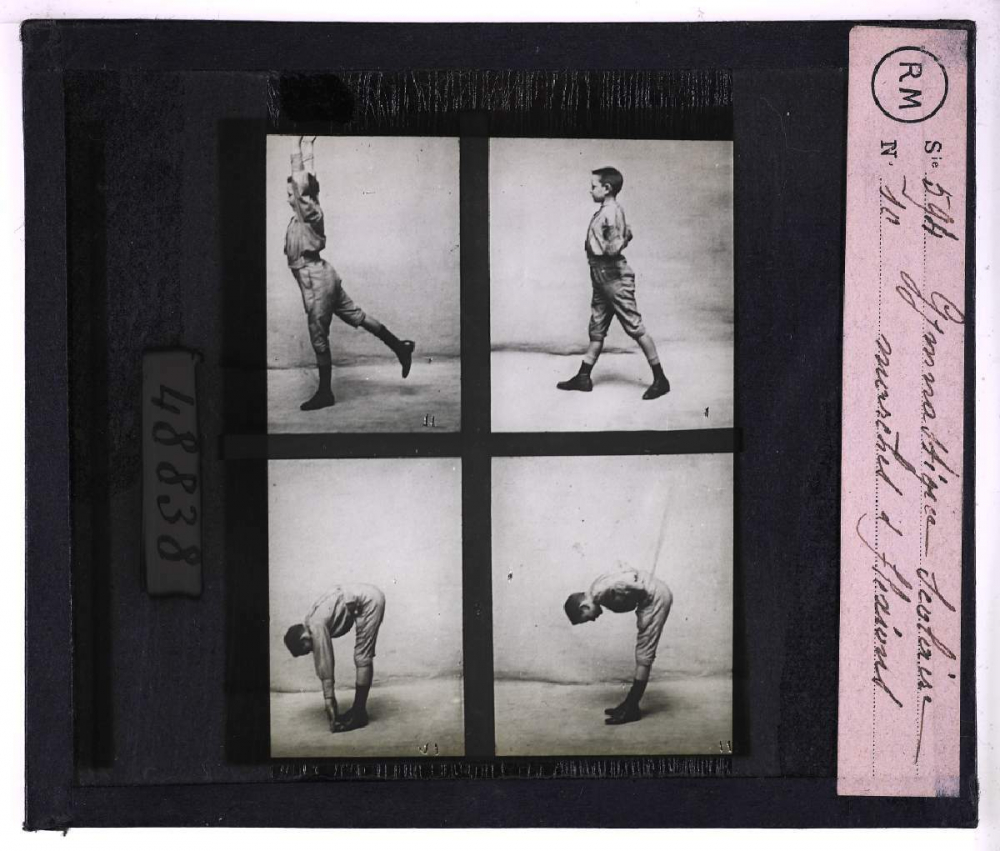 RM
Sie 594 Gymnastique Scolaire
N. 10 marches & flexions
48838